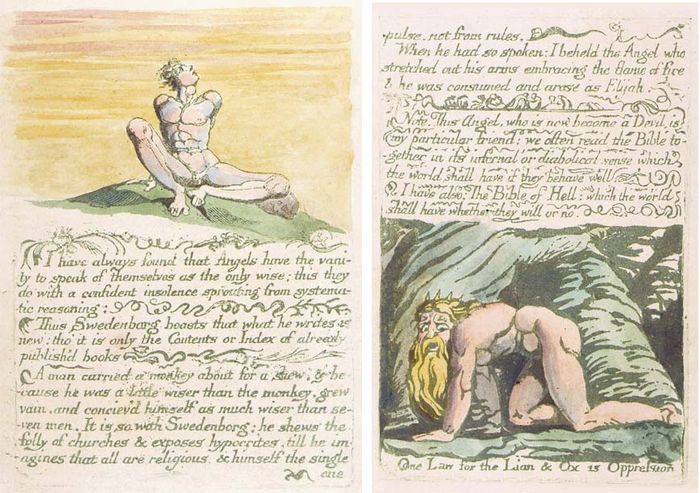 I have always found that Angels have the vani-
ty to speak of themselves as the only wise; this they
do with a confident insolence sprouting from systema-
tic reasoning:
Thus Swedenborg boasts that what he writes is
new; tho' it is only the Contents or Index of already
publish'd books
A man carried a monkey about for a shew, & be-
cause he was a little wiser than the monkey, grew
vain, and conciev'd himself as much wiser than se-
ven men. It is so with Swedenborg; he shews the
folly of churches & exposes hypocrites, till he im-
agines that all are religious, & himself the single
one
pulse, not from rules.
When he had so spoken: I beheld the Angel who
stretched out his arms embracing the flame of fire
& he was consumed and arose as Elijah.
Note. This Angel, who is now become a Devil, is
my particular friend: we often read the Bible to-
gether in its infernal or diabolical sense which
the world shall have if they behave well
I have also: The Bible of Hell: which the world
shall have whether they will or no.
One Law for the Lion & Ox is Oppression